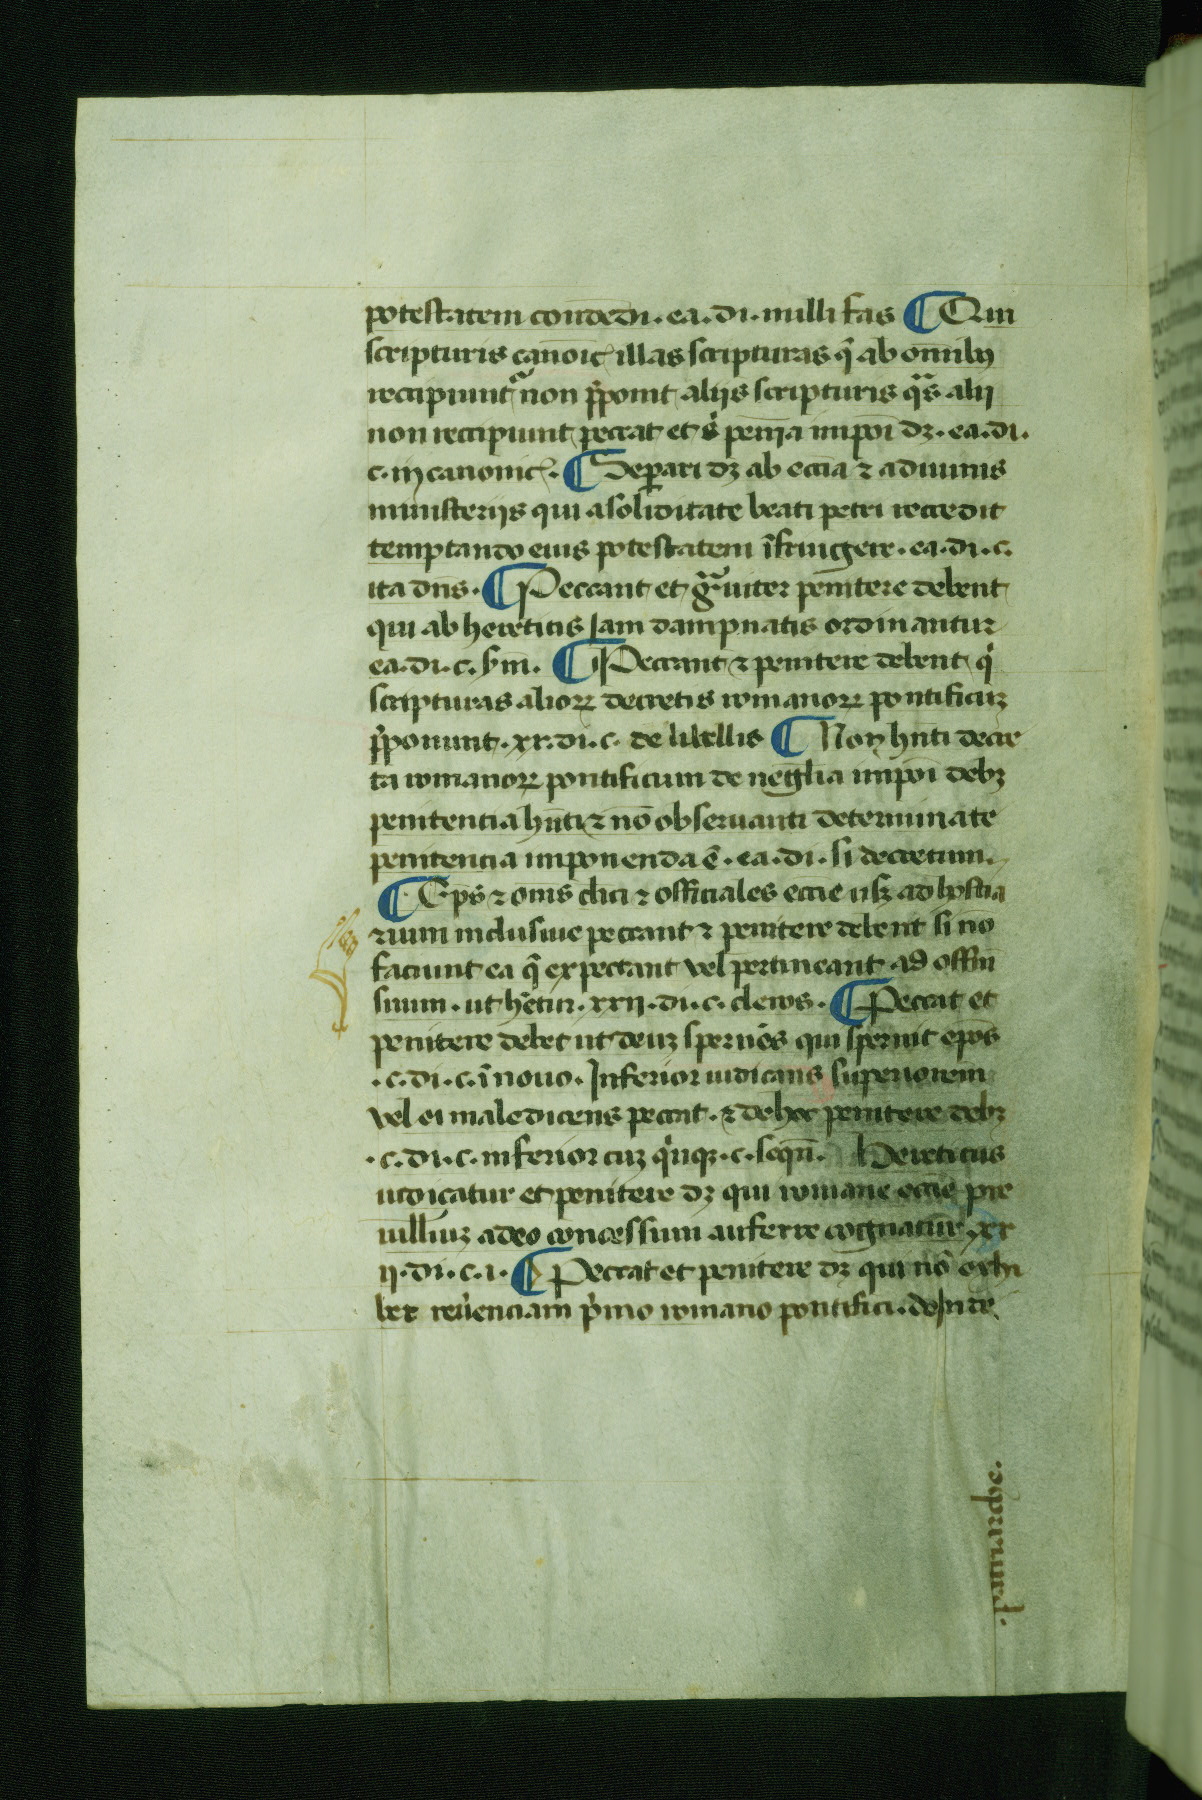 potestatem condēdi. ea. di. nulli fas ¶ Qui in
scripturis canōic illas scripturas q̄ ab omībꝰ
recipiunt᷑ non p̄ponit aliis scripturis qᷓs alii
non recipiunt peccat et ei penīa impoī dꝫ. ea. di.
c. in canonic. ¶ Seꝑari dꝫ ab eccīa ⁊ a diuinis
ministeriis qui a soliditate beati petri recedit
temptando eius potestatem īfringere. ea. di. c.
ita dn̄s. ¶ Peccant et gᷓuiter penitere debent
qui ab hereticis iam dampnatis ordinantur
ea. di. c. ¶ Peccant ⁊ penitere debent qͥ
scripturas alioꝝ decretis romanoꝝ pontificuꝫ
p̄ponunt. xx. di. c. de libellis ¶ Non hn̄ti decre
ta romanoꝝ pontificum de neglīa impoī debꝫ
penitentia hn̄ti ⁊ nō obseruanti determinate
penitencia imponenda ē. ea. di. si decretum.
¶ Ep̄s ⁊ om̄s clīci ⁊ officiales eccīe usqꝫ ad hostia
rium inclusiue peccant ⁊ penitere debent si nō
faciunt ea q̄ expectant vel pertineant ad offīm
suum. ut hētur. xxii. di. c. cleros. ¶ Peccat et
penitere debet ut deuꝫ spernēs qui spernit ep̄os
.c. di. c. ī nouo. Inferior iudicans superiorem
vel ei maledicens peccat. ⁊ de hoc penitere debꝫ
.c. di. c. inferior cuꝫ qͥnqꝫ. c. sequē. Hereticus
iudicatur et penitere dꝫ qui romane eccīe pre
uillīuꝫ a deo concessum auferre cognatur xx
ii. di. c. i. ¶ Peccat et penitere dꝫ qui nō exhi
bet reuerenciam p̄mo romano pontifici. deinde
.patriarche.